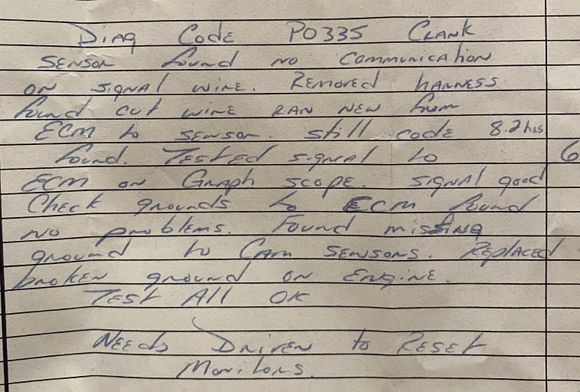 Diag Code P0335 Crank
sensor found no communication
on signal wire. Removed harness
found cut wire ran new from
ECM to sensor. still code 8.2 hrs
found. Tested signal to 6
ECM on Graph scope. signal good
Check grounds to ECM found
no problems. Found missing
ground to Cam sensors. Replaced
broken ground on Engine.
Test All OK
Needs Driven to Reset
Monitors.